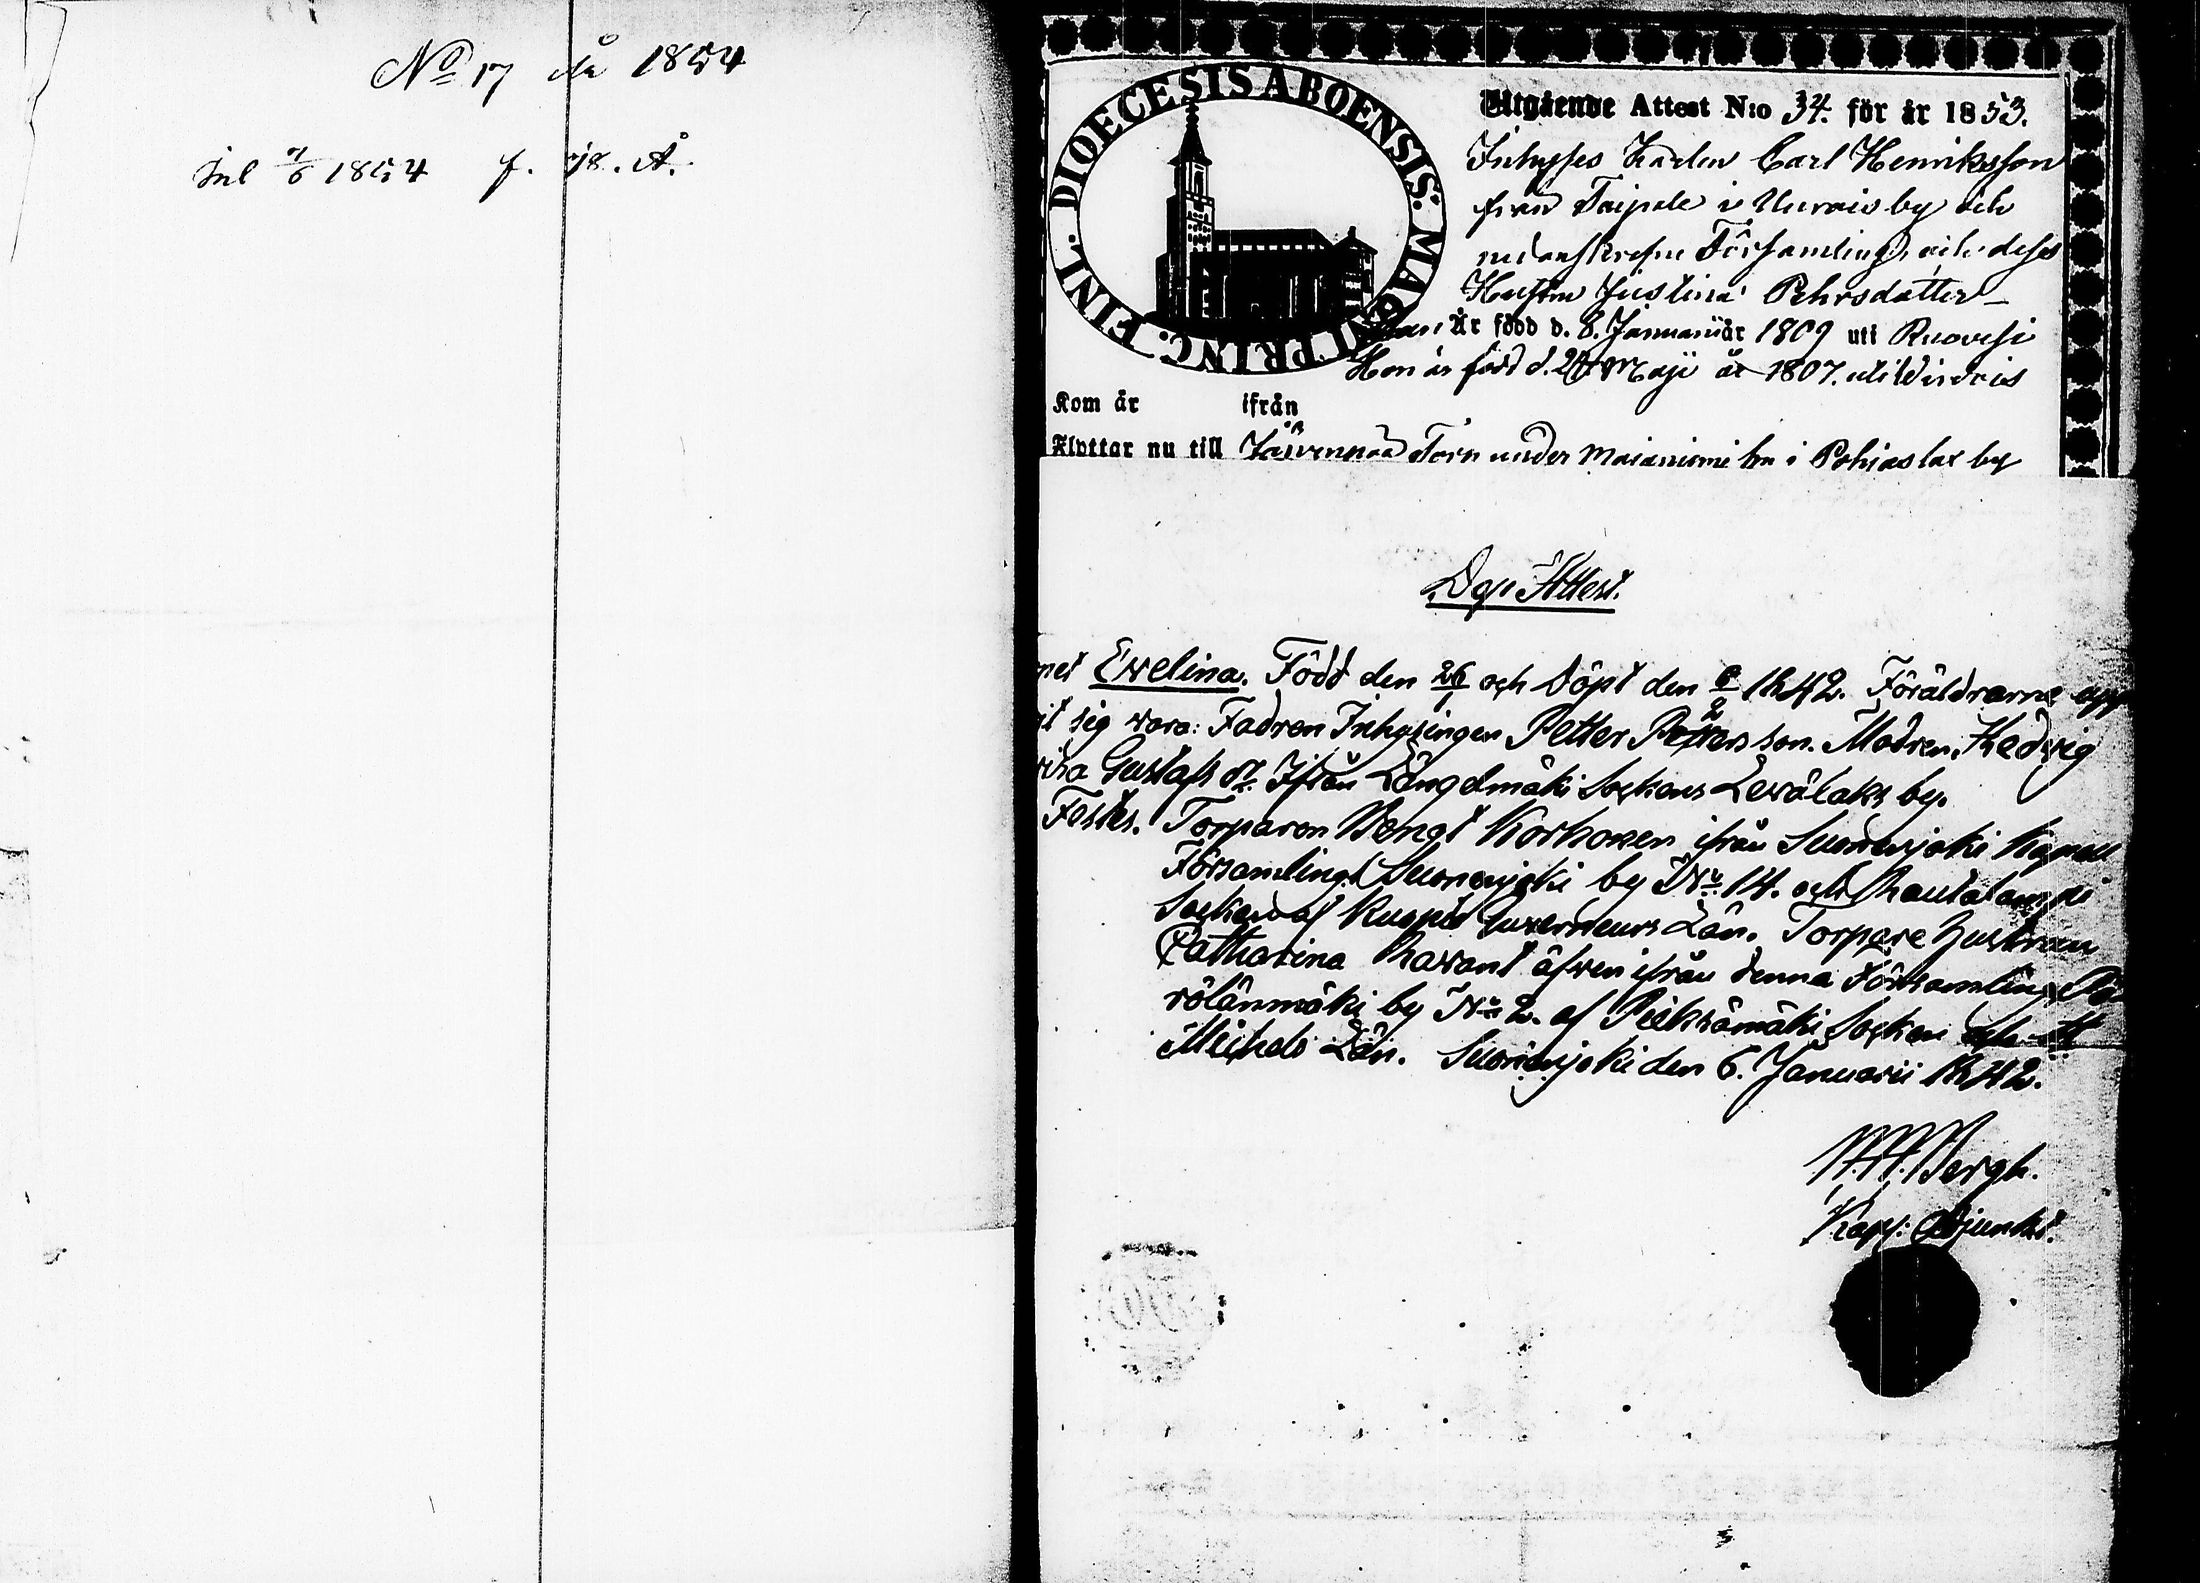 No 17 år 1854
Inl 7/6 1854 f. 98. A.
DIOECESIS ABOENSIS. MAGNI PRINC. FINL.
Utgående Attest N:o 34. för år 1853.
Inhyses Karlen Carl Henriksson
från Taipale i Uurais by och
nedanskrefne Församling, och dess
Hustru Justina Pehrsdotter
Han Är född d. 8. Januarii år 1809 uti Ruovesi
Hon är född d. 24 Maji år 1807. uti Wirdois
Kom år ifrån
Flyttar nu till Torp under i Pohjaslax by
Dop Attest.
Ewelina. Född den 26/1 och Döpt den 6/2 1842. Föräldrarne upp
it sig vara: Fadren Inhysingen Petter Pettersson. Modren, Hedvig
Gustafs dr. Ifrån Längelmäki Sockens Leväłaks by.
Testes. Torparen Bengt Korhonen ifrån Suonenjoki Kapell
Församling Suonenjoki by No 14. och Rautalampi
Socken af Kuopio Guverneurs Län. Torpare hustrun
Catharina äfven ifrån denna Församling
by No 2. af Pieksämäki Socken och St
Michels Län. Suonenjoki den 6. Januarii 1842.
Bergh.
Kapl: Adjunkt.